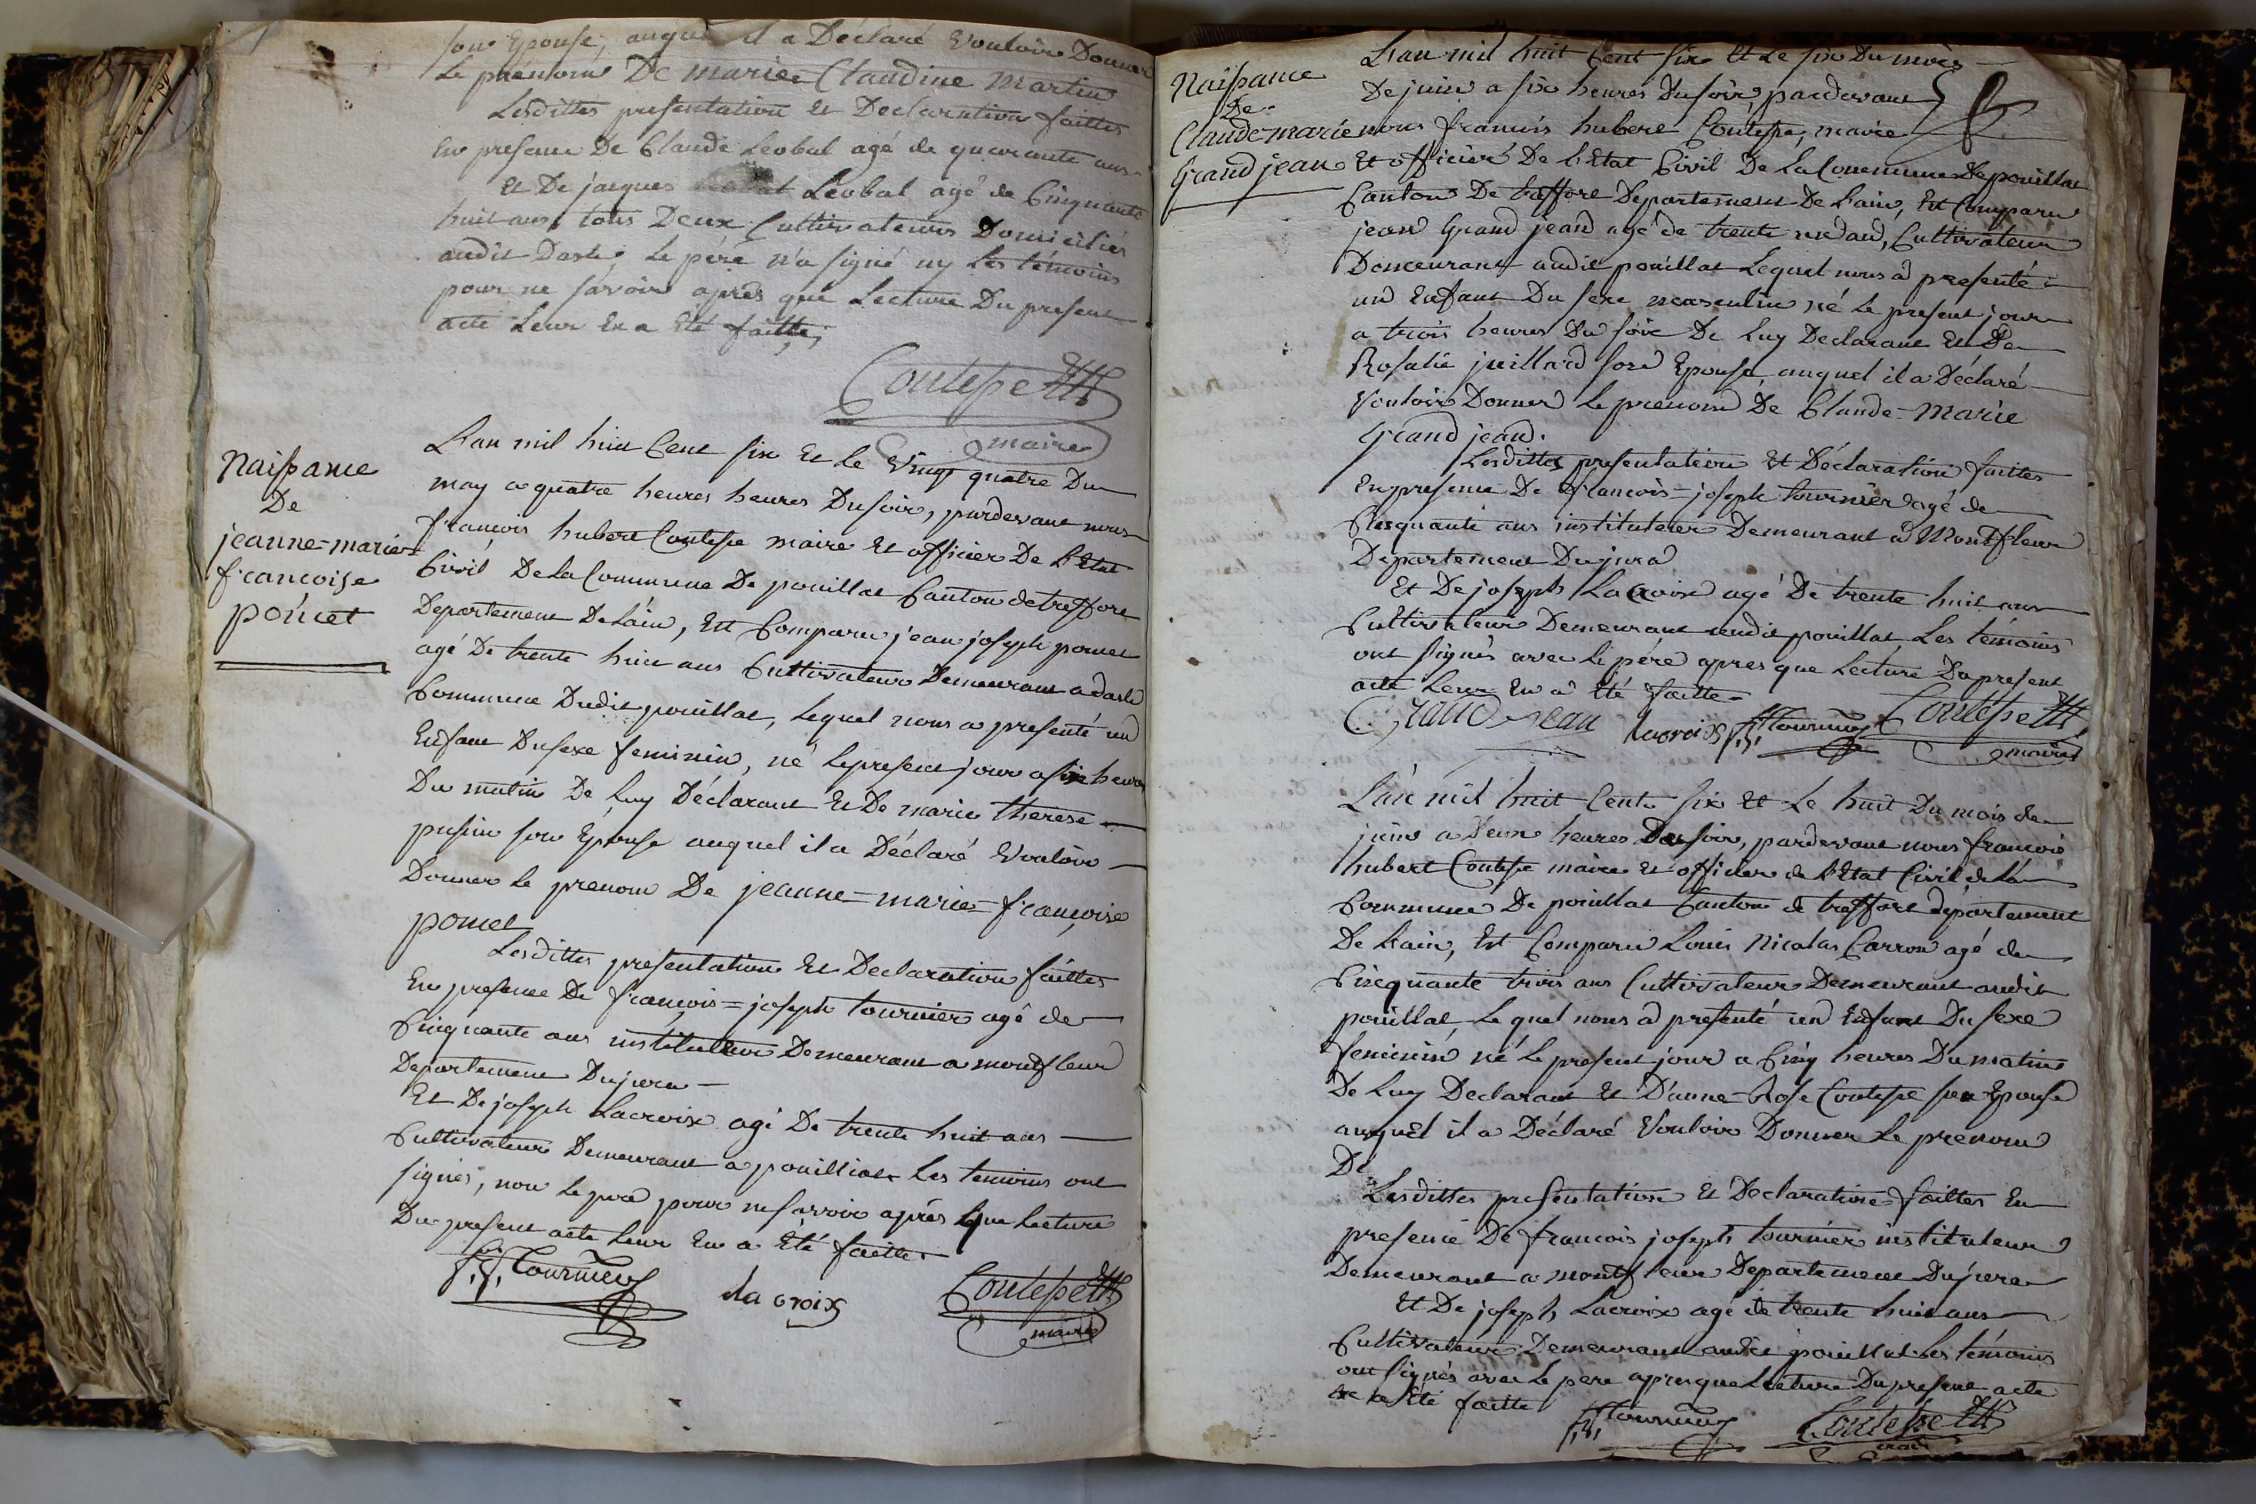 son Epouse, auquel il a Déclaré Vouloir Donner
Le prénom De marie Claudine Martin
Lesdittes presentation Et Declaration faittes
En presence De Claude Leobal agé de quarante ans
Et De jacques Leobal agé de Cinquante
huit ans, tous Deux Cultivateurs Domiciliés
audit Dasle, Le pére n'a signé ny Les témoins
pour ne sávoir aprés que Lecture Du present
acte Leur En a Eté faitte,
Coutepe
maire
Naissance
De
jeanne=marie
francoise
poncet
L'an mil huit Cent six Et le Vingt quatre Du
may a quatre heures heures Du soir, pardevant nous
francois hubert Coutepe maire Et officier De L'Etat
Civil De La Commune De pouillat Canton de treffort
Departement De L'ain, Est Comparu jean joseph poncet
agé De trente huit ans Cultivateur Demeurant a dasle
Commune Dudit pouillat, Lequel nous a presenté un
Enfant Du sexe feminin, né Le present jour a six heures
Du matin De Luy Déclarant Et De marie therese
pusin son Epouse auquel il a Déclaré Vouloir
Donner Le prenom De jeanne=marie=françoise
poncet
Lesdittes presentation Et Declaration faittes
En presence De francois=joseph tournier agé de
Cinquante ans instituteur Demeurant a montfleur
Departement Du jura
Et De joseph Lacroix agé De trente huit ans
Cultivateur Demeurant a pouilliat Les temoins ont
signés, non le pere pour ne savoir aprés que Lecture
Du present acte Leur En a Eté faitte
f, j, tournier
la croix
Coutepe
maire
Naissance
De
Claude=marie
Grand jean
L'an mil huit Cent six Et Le six Du mois
De juin a six heures Du soir, pardevant
nous francois hubert Coutepe, maire
Et officier De L'Etat Civil De La Commune De pouillat
Canton De treffort Departement De L'ain, Est Comparu
jean Grand jean agé de trente un ans, Cultivateur
Demeurant audit pouillat Lequel nous a presenté
un Enfant Du sexe masculin né Le present jour
a trois heures Du soir De Luy Declarant Et De
Rosalie juillard son Epouse auquel il a Déclaré
Vouloir Donner Le prenom De Claude=Marie
Grand jean.
Lesdittes presentation Et Déclaration faittes
En presence De francois=joseph tournier agé de
Cinquante ans instituteur Demeurant a Montfleur
Departement Du jura
Et De joseph Lacroix agé De trente huit ans
Cultivateur Demeurant audit pouillat Les témoins
ont signés avec Le pére apres que Lecture Du present
acte Leur En a Eté faitte
Grand Jean lacroix f, j, tournier Coutepe
maire
L'an mil huit Cent six Et Le huit Du mois de
juin a Deux heures Du soir, pardevant nous francois
hubert Coutepe maire Et officier de L'Etat Civil de La
Commune De pouillat Canton de treffort departement
De L'ain, Est Comparu Louis Nicolas Carron agé de
Cinquante trois ans Cultivateur Demeurant audit
pouillat, Le quel nous a presenté un Enfant Du sexe
feminin né Le present jour a Cinq heures Du matin
De Luy Declarant Et D'anne Rose Coutepe son Epouse
auquel il a Déclaré Vouloir Donner Le prenom
De
Lesdittes presentation Et Declaration faittes En
presence De francois joseph tournier instituteur
Demeurant a montfleur Departement Du jura
Et De joseph Lacroix agé de trente huit ans
Cultivateur Demeurant audit pouillat Les témoins
ont signés avec Le pere apres que Lecture Du present acte
Eté faitte
f, j, tournier Coutepe